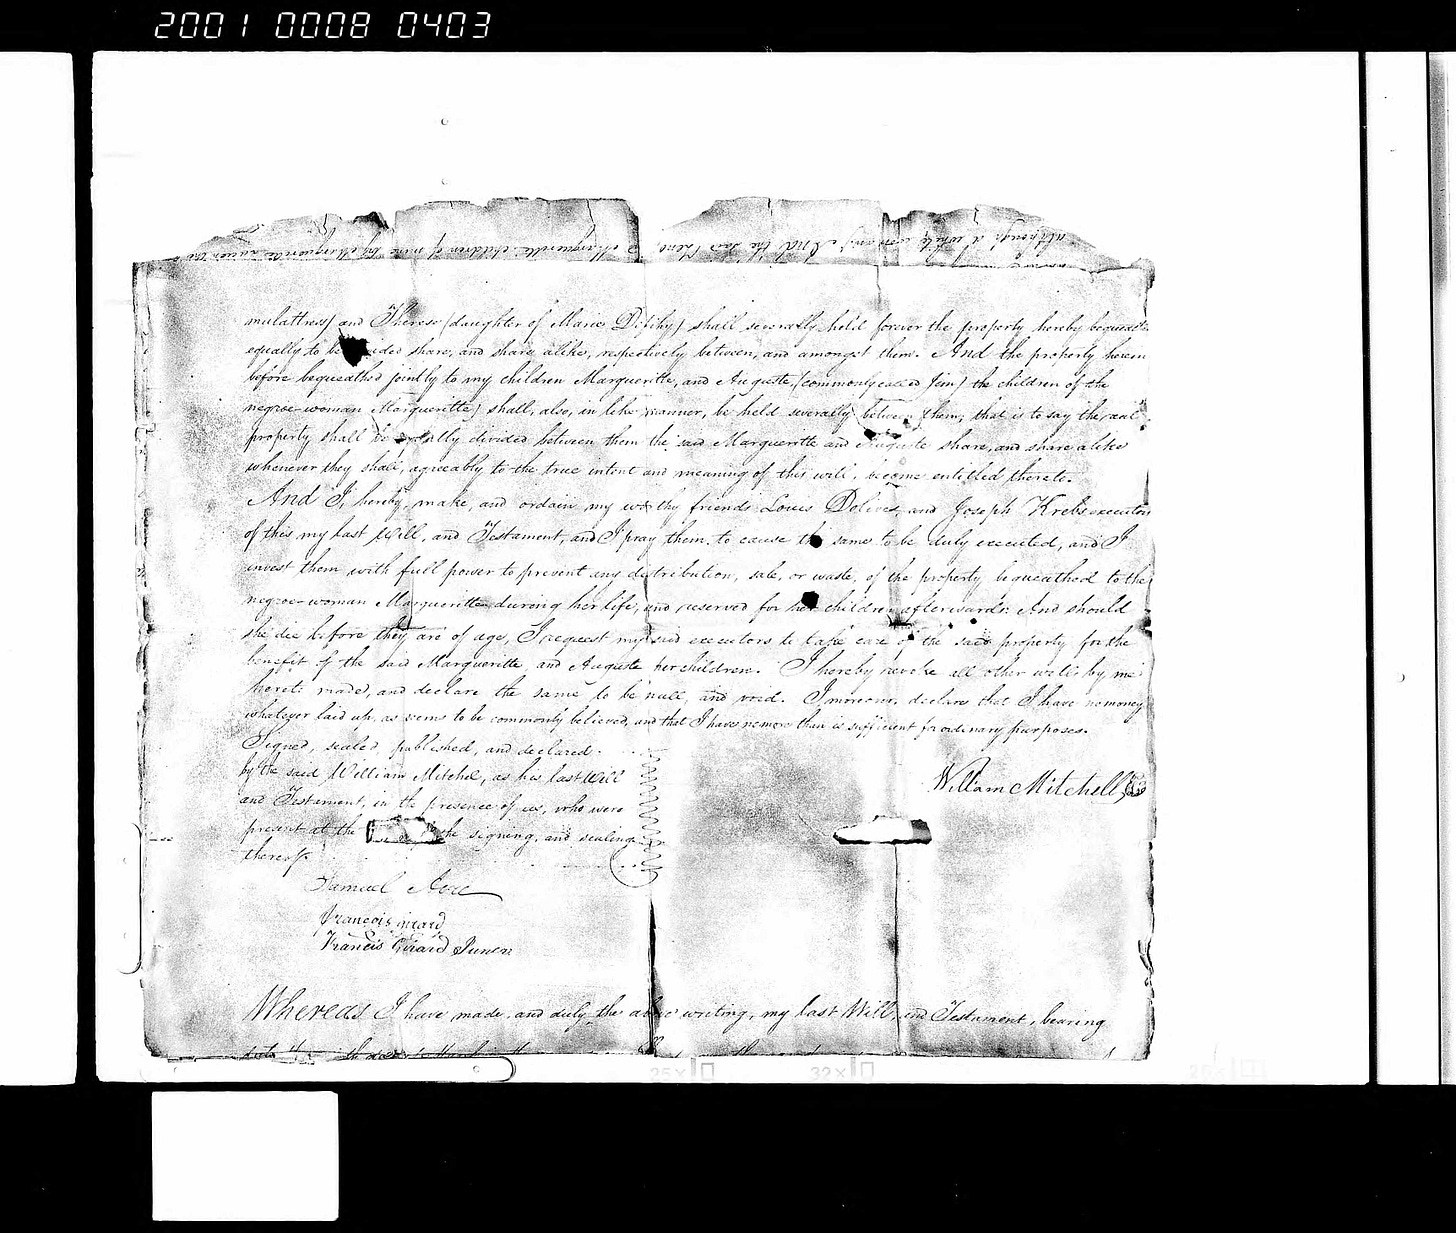 2001 0008 0403
although a white woman) And the said Irene & Margueritte children of mine by Margueritte
mulattress) and Therese (daughter of Marie Dipihy) shall severally hold forever the property hereby bequeath
equally to be divided share, and share alike, respectively between, and amongst them. And the property herein
before bequeathed jointly to my children Margueritte, and Auguste, (commonly called Jim) the children of the
negroe-woman Margueritte) shall, also, in like manner, be held severally between them, that is to say the real
property, shall be equally divided between them the said Margueritte and Auguste share, and share alike
whenever they shall, agreeably to the true intent and meaning of this will, become entitled thereto.
And I, hereby, make, and ordain my worthy friends Louis Dolives, and Joseph Krebs executors
of this my last Will, and Testament, and I pray them, to cause the same to be duly executed, and I
invest them with full power to prevent any distribution, sale, or waste, of the property bequeathed to the
negroe-woman Margueritte during her life, and reserved for her children afterwards: And should
she die before they are of age, I request my said executors to take care of the said property for the
benefit of the said Margueritte, and Auguste her children. I hereby revoke all other wills by me
hereto made, and declare the same to be null, and void. I moreover declare that I have no money
whatever laid up, as seems to be commonly believed, and that I have no more than is sufficient for ordinary purposes.
Signed, sealed, published, and declared
by the said William Mitchel, as his last Will
and Testament, in the presence of us, who were
present at the the signing, and sealing
thereof.
William Mitchell
Samuel Acre
francois girard
Francis Girard Junor
Whereas I have made, and duly the above writing, my last Will, and Testament, bearing
25X
32X